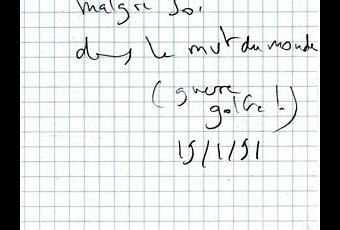 malgré soi
dans le mvt du monde
(guerre
golfe!)
15/1/91